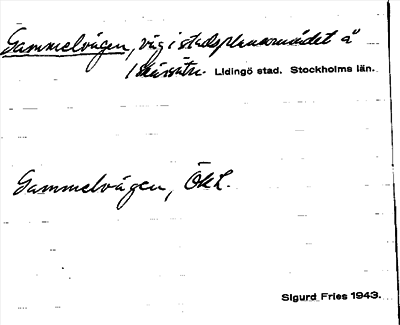 Gammelvägen, väg i stadsplaneområdet å
Skärsätra. Lidingö stad. Stockholms län.
Gammelvägen, ÖkL.
Sigurd Fries 1943.